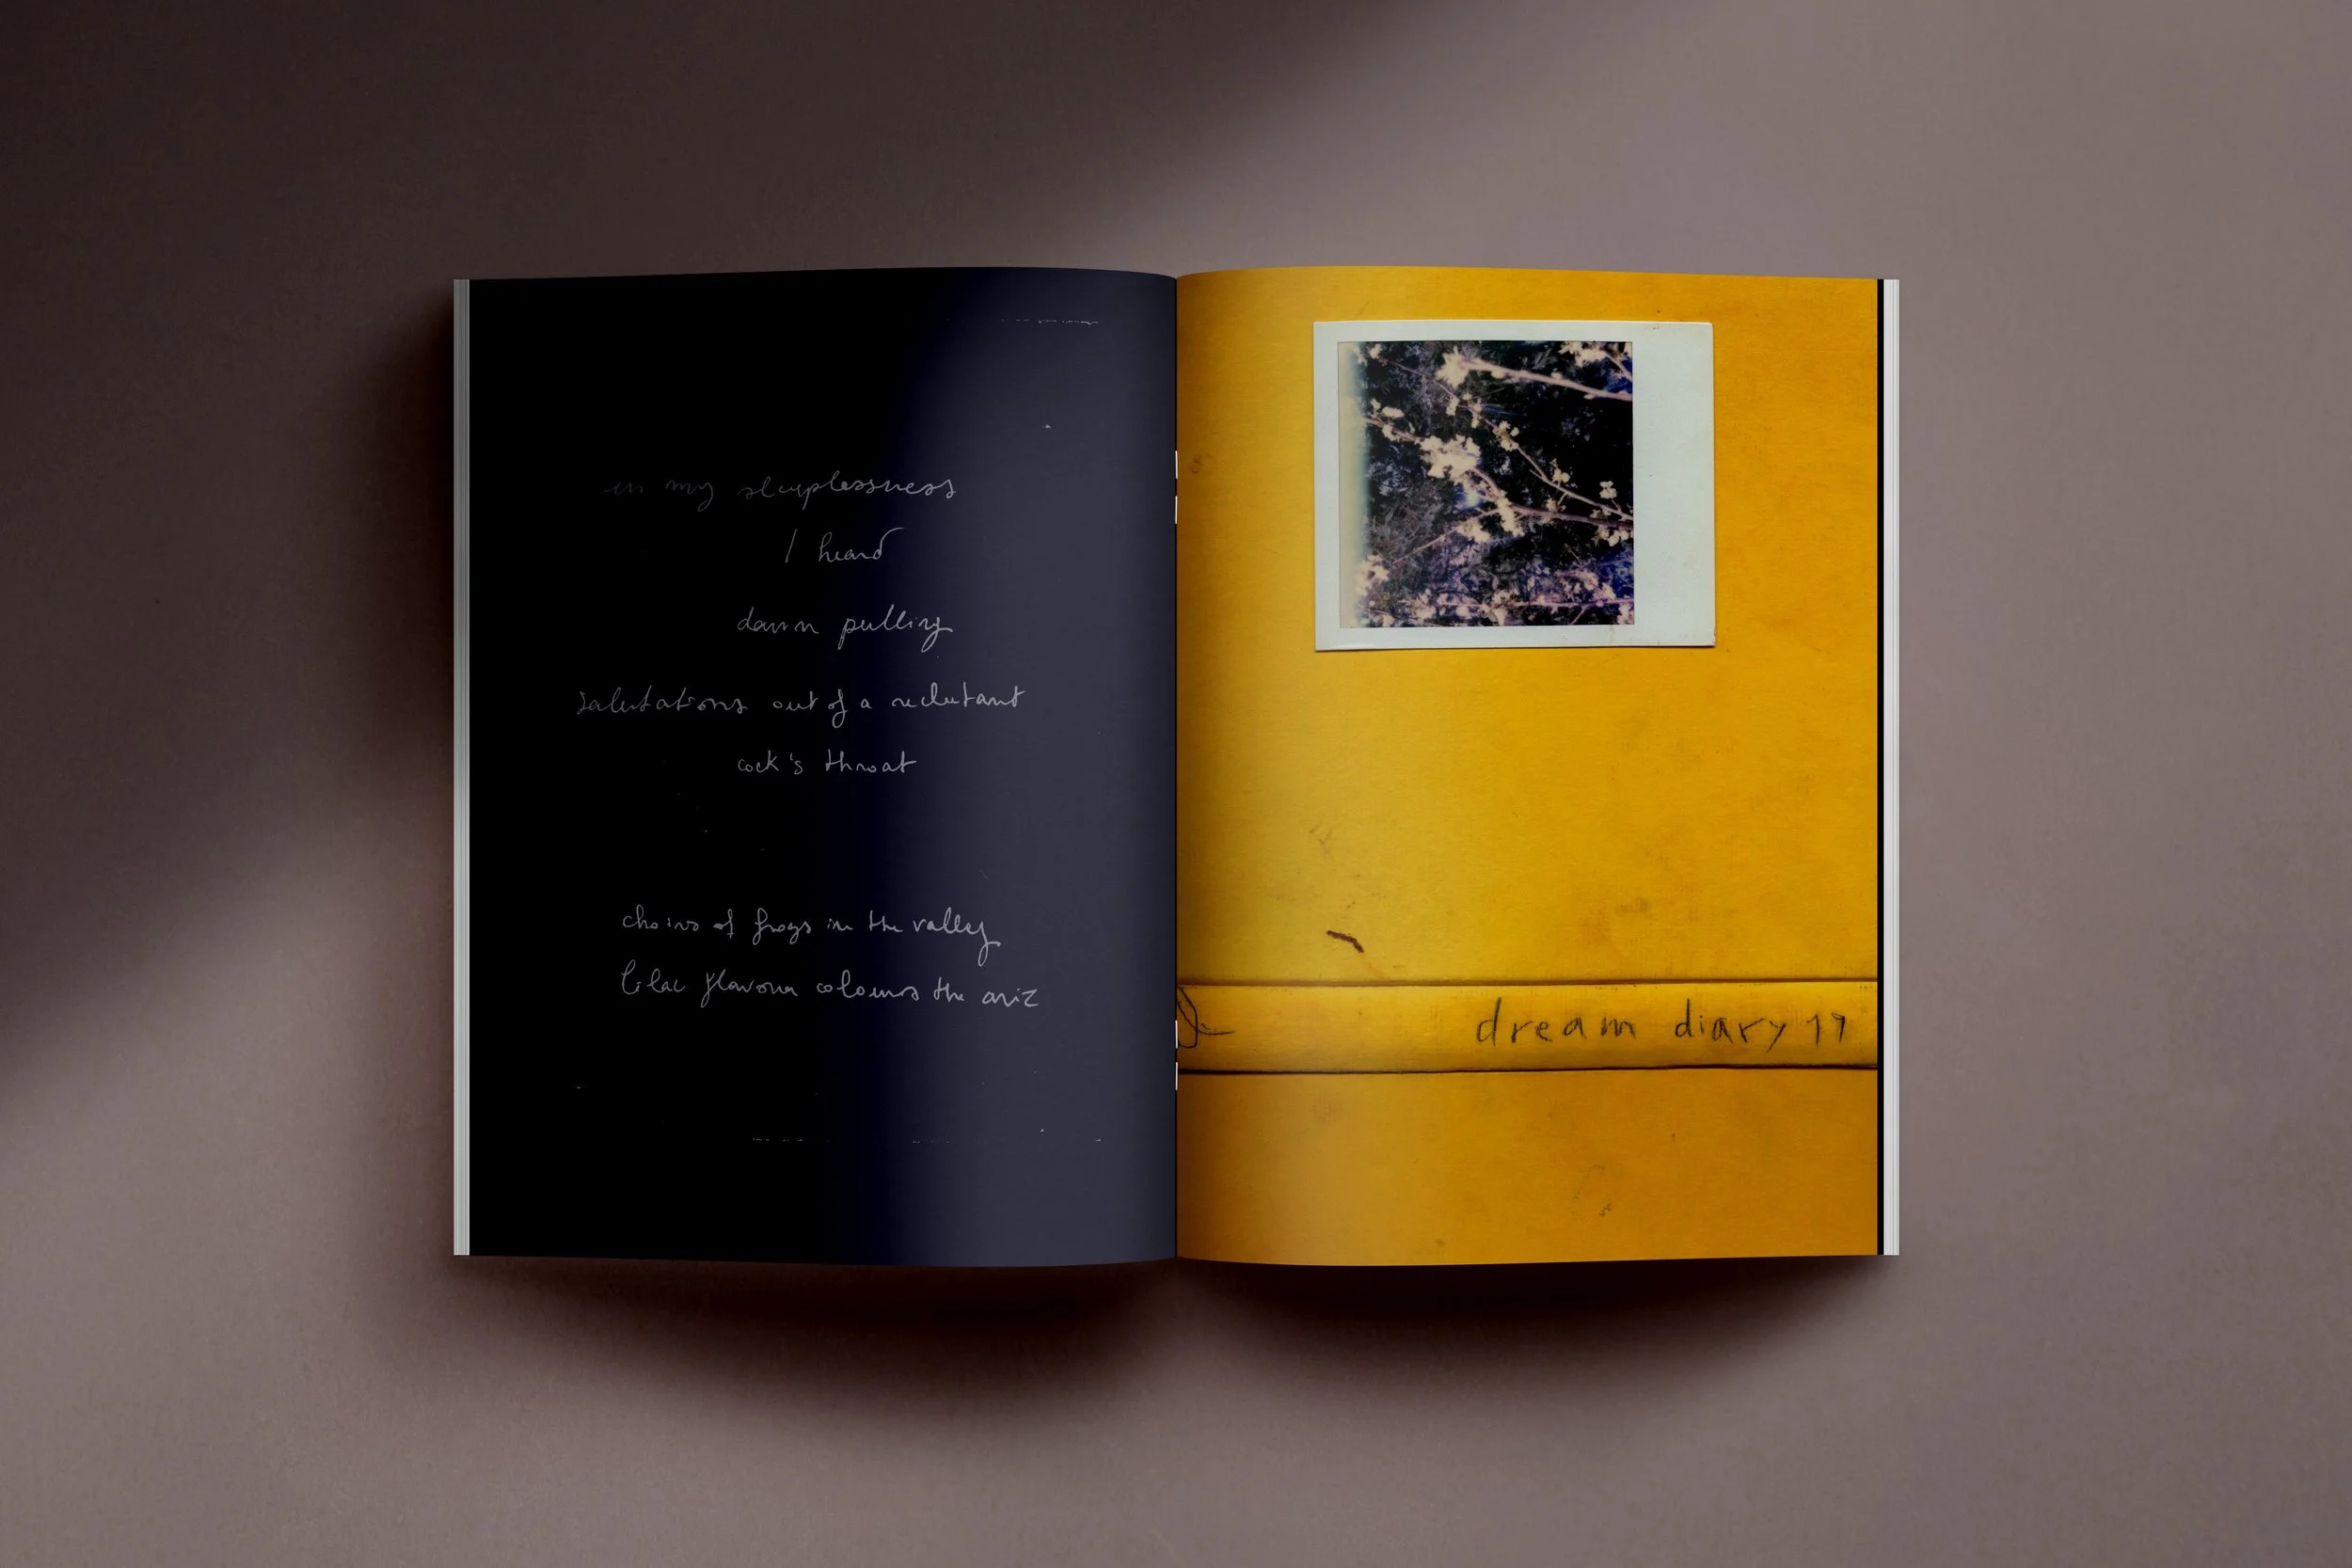 in my sleeplessness
I heard
dawn pulling
salutations out of a reluctant
cock's throat
choirs of frogs in the valley
lilac flavour colours the air
dream diary 17